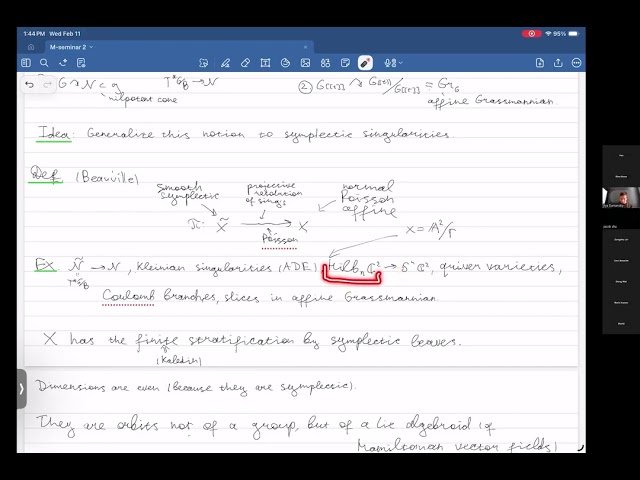 1:44 PM Wed Feb 11
95%
M-seminar 2
G ↷ N ⊂ g T*G/B → N ② G[[t]] ↷ G((t))/G[[t]] = Gr_G
nilpotent cone affine Grassmannian
Idea: Generalize this notion to symplectic singularities.
Def (Beauville)
smooth symplectic projective resolution of sings normal Poisson affine
π: X̃ → X
Poisson
X = A²/Γ
EX Ñ → N, Kleinian singularities (ADE), Hilbₙ ℂ² → Sⁿ ℂ², quiver varieties,
T*G/B
Coulomb branches, slices in affine Grassmannian
X has the finite stratification by symplectic leaves.
(Kaledin)
Dimensions are even (because they are symplectic).
They are orbits not of a group, but of a Lie algebroid (of
Hamiltonian vector fields)